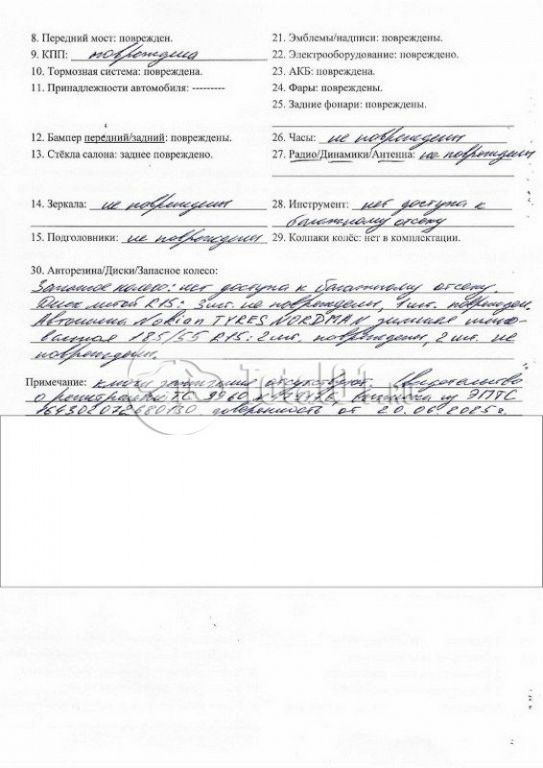 8. Передний мост: поврежден.
9. КПП: повреждена
10. Тормозная система: повреждена.
11. Принадлежности автомобиля: ---------
12. Бампер передний/задний: повреждены.
13. Стёкла салона: заднее повреждено.
14. Зеркала: не повреждены
15. Подголовники: не повреждены
21. Эмблемы/надписи: повреждены.
22. Электрооборудование: повреждено.
23. АКБ: повреждена.
24. Фары: повреждены.
25. Задние фонари: повреждены.
26. Часы: не повреждены
27. Радио/Динамики/Антенна: не повреждены
28. Инструмент: нет доступа к
багажному отсеку
29. Колпаки колёс: нет в комплектации.
30. Авторезина/Диски/Запасное колесо:
Запасное колесо: нет доступа к багажному отсеку.
Диск литой R15: 3шт. не повреждены, 1шт. поврежден.
Автошина Nokian TYRES NORDMAN зимняя шипо-
ванная 185/55 R15: 2шт. повреждены, 2шт. не
повреждены.
Примечание: ключи зажигания отсутствуют. Свидетельство
о регистрации ТС 9960 выписка из ЭПТС
164302072680130 доверенность от 20.06.2025г.